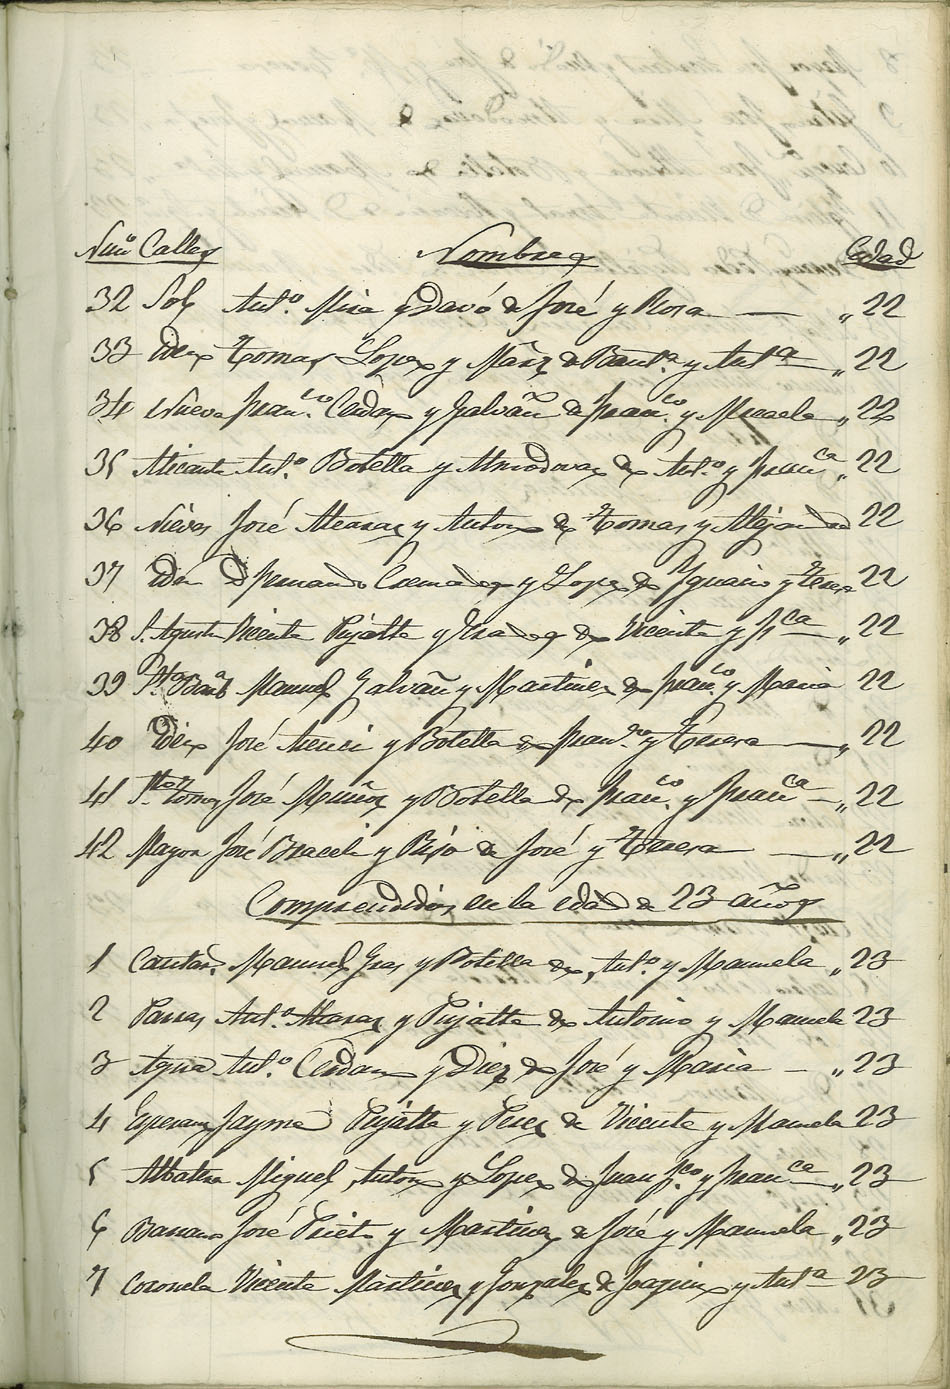 Numº Calles Nombres Edad
32 Sol Antº. Mira y Davó de José y Rosa — „ 22
33 Ydem Tomas Lopez y de Bautª. y Antª „ 22
34 Nueva Franco. Cerdan y Galvañ de Franco. y Micaela „ 22
35 Alicante Antº. Botella y Almodovar de Antº. y Franca „ 22
36 Nieves José Alcaraz y Anton de Tomas y Alejandra 22
37 Ydem D Fernando Cremades y Lopez de Ygnacio y Teresa 22
38 S. Agustin Vicente Pujalte y de Vicente y Fca „ 22
39 Manuel Galvañ y Martinez de Franco. y Maria 22
40 Ydem José Asenci y Botella de Franco. y Teresa — „ 22
41 Sto Tomas José Muñoz y Botella de Franco. y Franca — „ 22
42 Mayor José Braceli y de José y Teresa — „ 22
Comprendidos en la edad de 23 años
1 Manuel Gras y Botella de Antº. y Manuela „ 23
2 Parras Antº. Alcaraz y Pujalte de Antonio y Manuela 23
3 Agua Antº. Cerdan y Diez de José y Maria — „ 23
4 Jayme Pujalte y Perez de Vicente y Manuela 23
5 Albatera Miguel Anton y Lopez de Juan Fco. y Franca „ 23
6 José Prieto y Martinez de José y Manuela „ 23
7 Coronela Vicente Martinez y Gonzalez de Joaquin y Antª 23